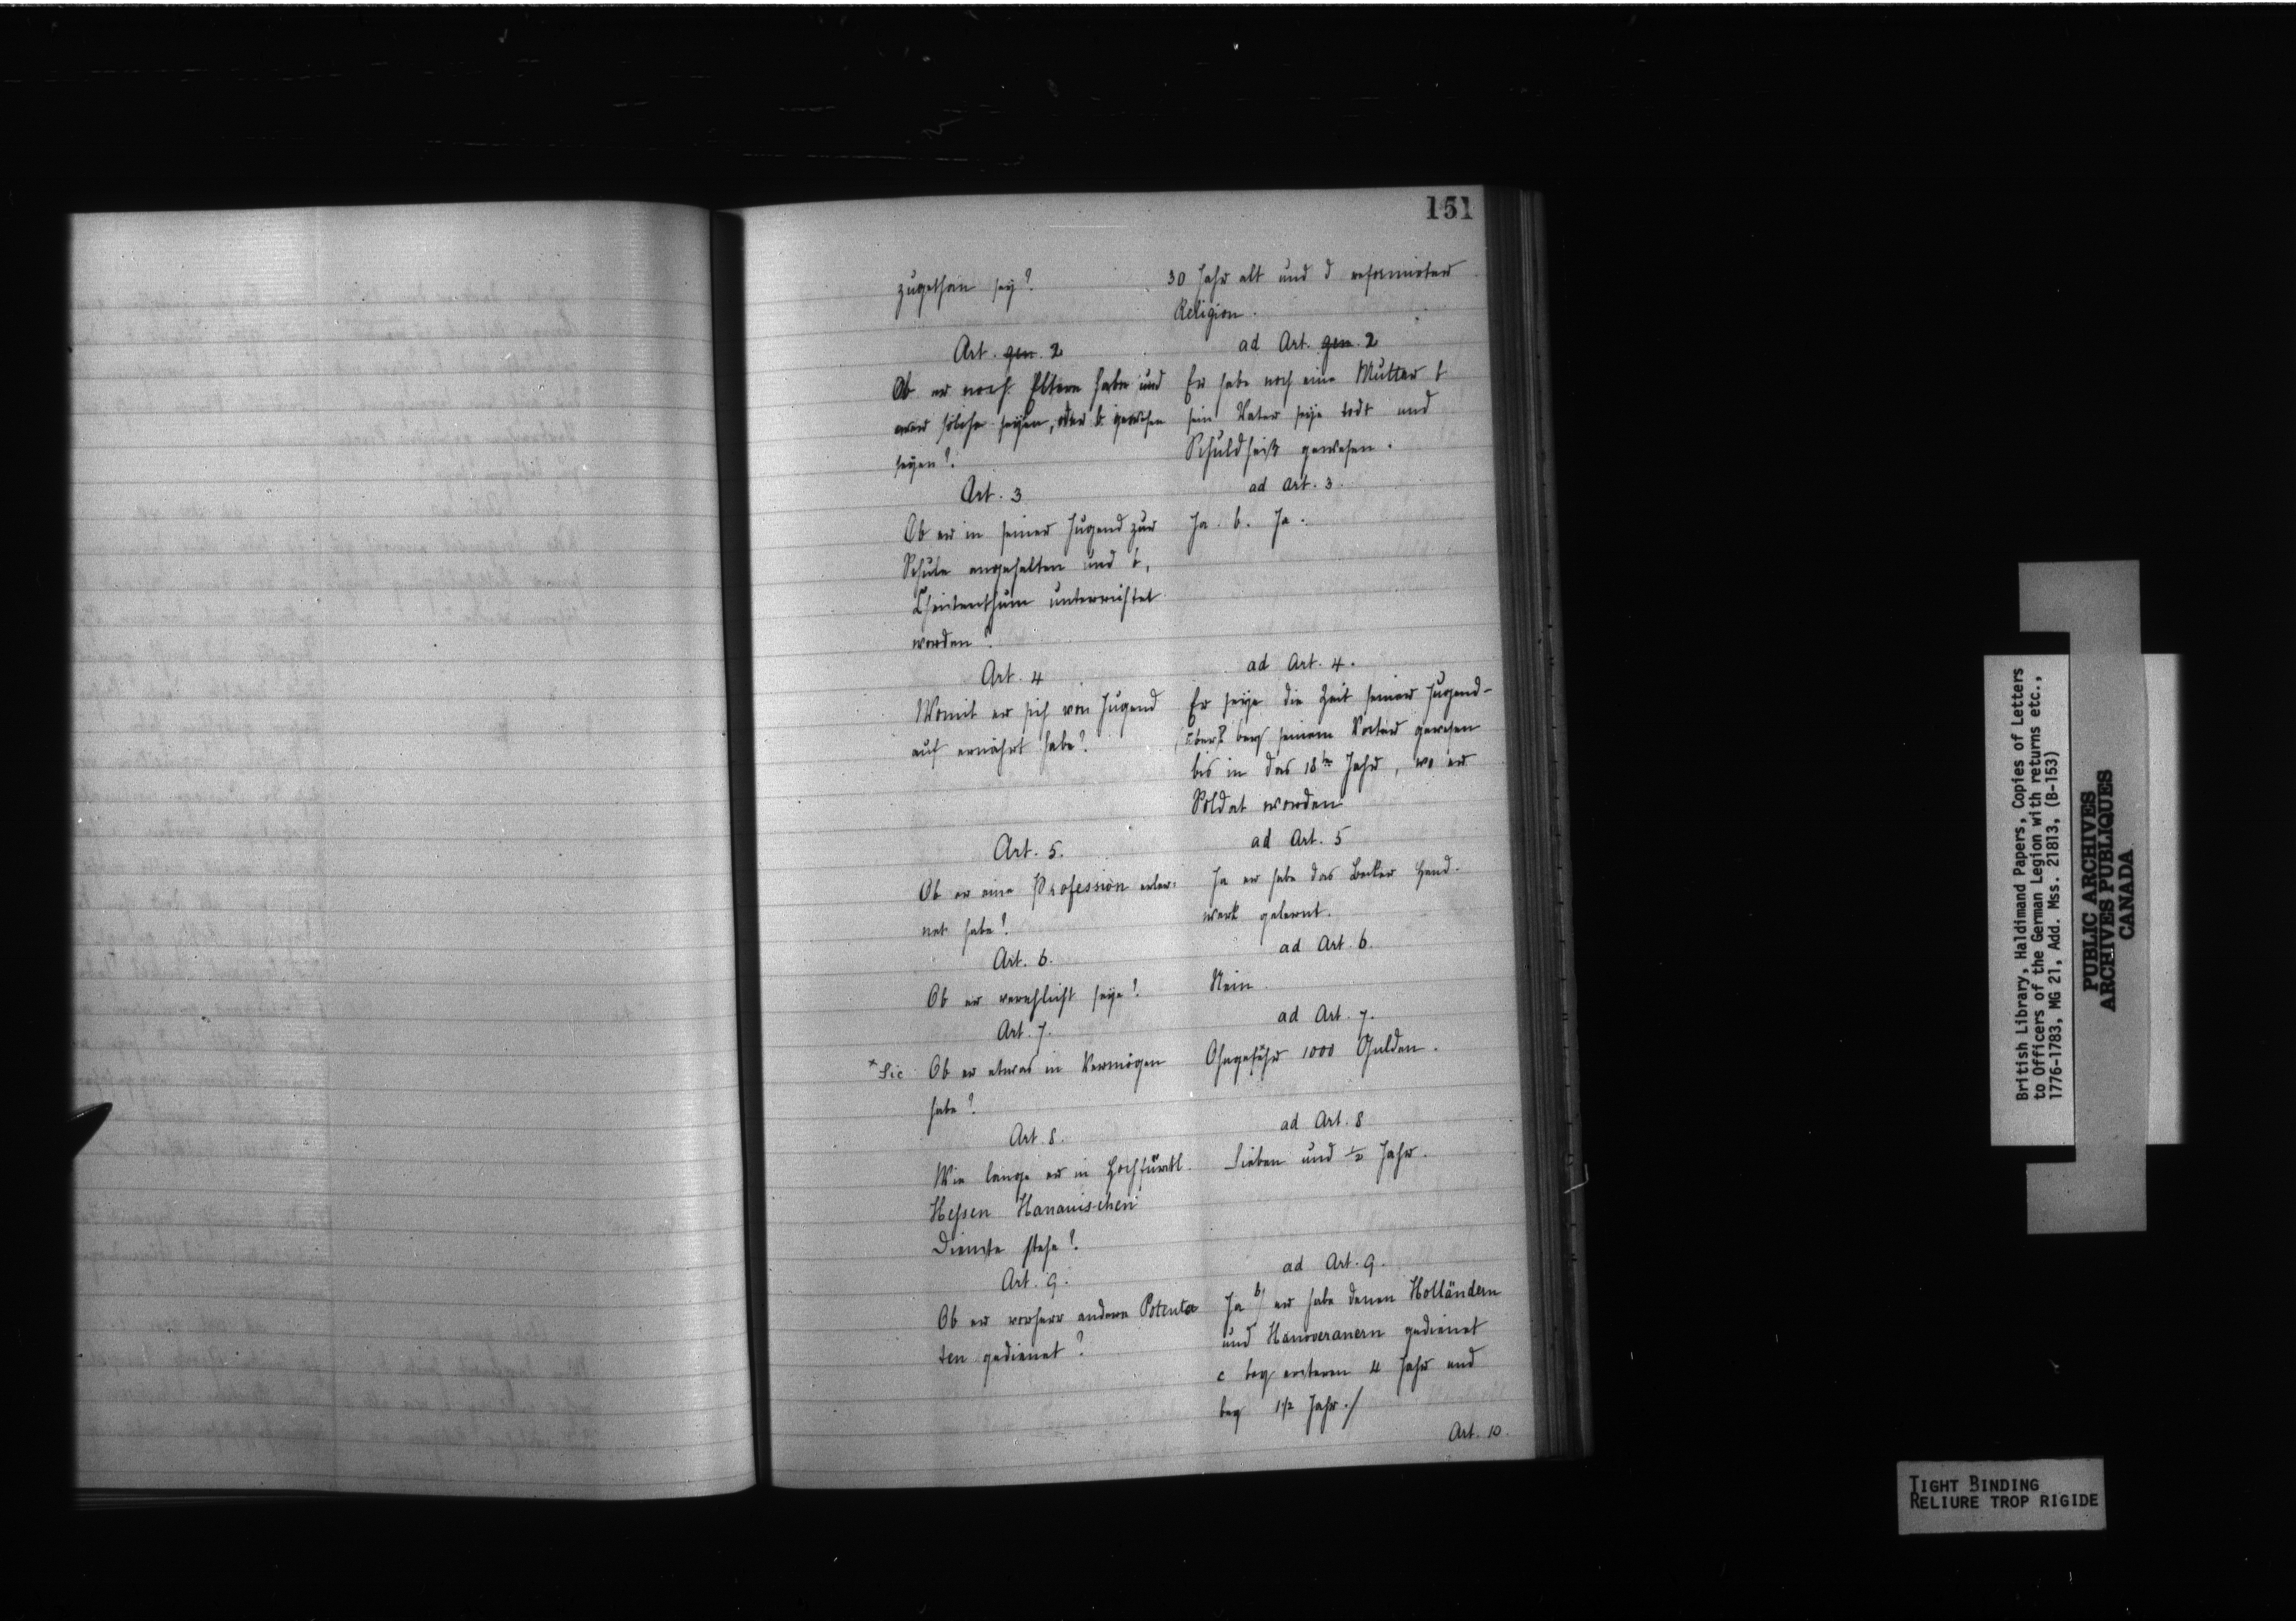 151
zugethan sey?
Art. gen. 2
Ob er noch Eltern habe und
wer solche seyen, oder b gewesen
seyen?
Art. 3
Ob er in seiner Jugend zur
Schule angehalten und b,
Christenthum unterrichtet
worden?
Art. 4
Womit er sich von Jugend
auf ernährt habe?
Art. 5.
Ob er eine Profession erler=
net habe?
Art. 6.
Ob er verehlicht seye?
Art. 7.
* Sic Ob er etwas in Vermögen
habe?
Art. 8.
Wie lange er in Hochfürstl.
Hessen Hanauischen
Dienste stehe?
Art. 9.
Ob er vorherr andern Potenta
ten gedienet?
30 Jahr alt und d reformirter
Religion.
ad Art. gen. 2
Er habe noch eine Mutter b
sein Vater seye todt und
Schuldheiß gewesen.
ad Art. 3.
Ja. b. Ja.
ad Art. 4.
Er seye die Zeit seiner Jugend-
bey seinem Vater gewesen
bis in das 18te Jahr, wo er
Soldat worden
ad Art. 5
Ja er habe das Becker Hand-
werk gelernt.
ad Art. 6.
Nein
ad Art. 7.
Ohngefähr 1000 Gulden.
ad Art. 8
Sieben und ½ Jahr.
ad Art. 9.
Ja b/ er habe denen Holländern
und Hanoveranern gedienet
c bey ersteren 4 Jahr und
bey 1½ Jahr./
Art. 10.
British Library, Haldimand Papers, Copies of Letters
to Officers of the German Legion with returns etc.,
1776-1783, MG 21, Add. Mss. 21813, (B-153)
PUBLIC ARCHIVES
ARCHIVES PUBLIQUES
CANADA
TIGHT BINDING
RELIURE TROP RIGIDE